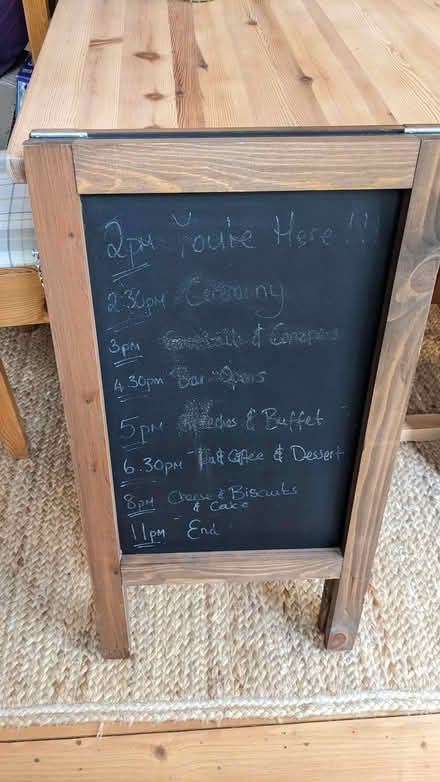 2pm You're Here!!!
2.30pm Ceremony
3pm Cocktails & Canapes
4.30pm Bar Opens
5pm Speeches & Buffet
6.30pm Tea & Coffee & Dessert
8pm Cheese & Biscuits
& Cake
11pm End